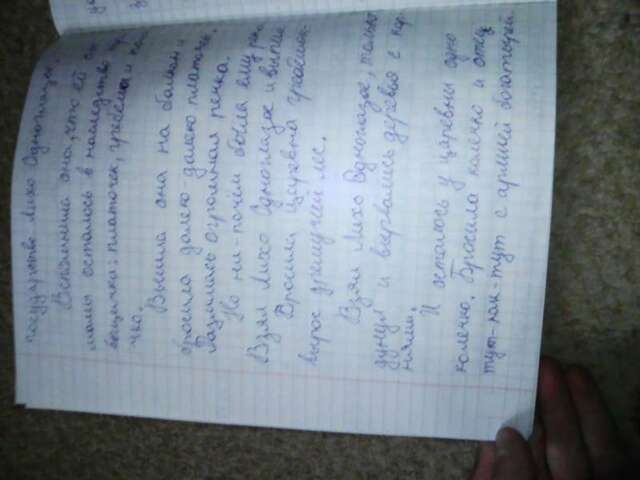 государство Лихо Одноглазое.
Вспомнила она, что ей от
мамы осталось в наследство
вещички: платочек, гребешок и ко-
чко.
Вышла она на балкон и
бросила далеко-далеко платочек.
Разлилась огромная река.
Но ни-почём была ему река.
Взял Лихо Одноглазое и выпил
Бросила Царевна гребешок
вырос дремучий лес.
Взял Лихо Одноглазое, только
дунул и вырвались деревья с кор-
нями.
И осталось у царевны одно
колечко. Бросила колечко и отец
тут-как-тут с армией богатырей.